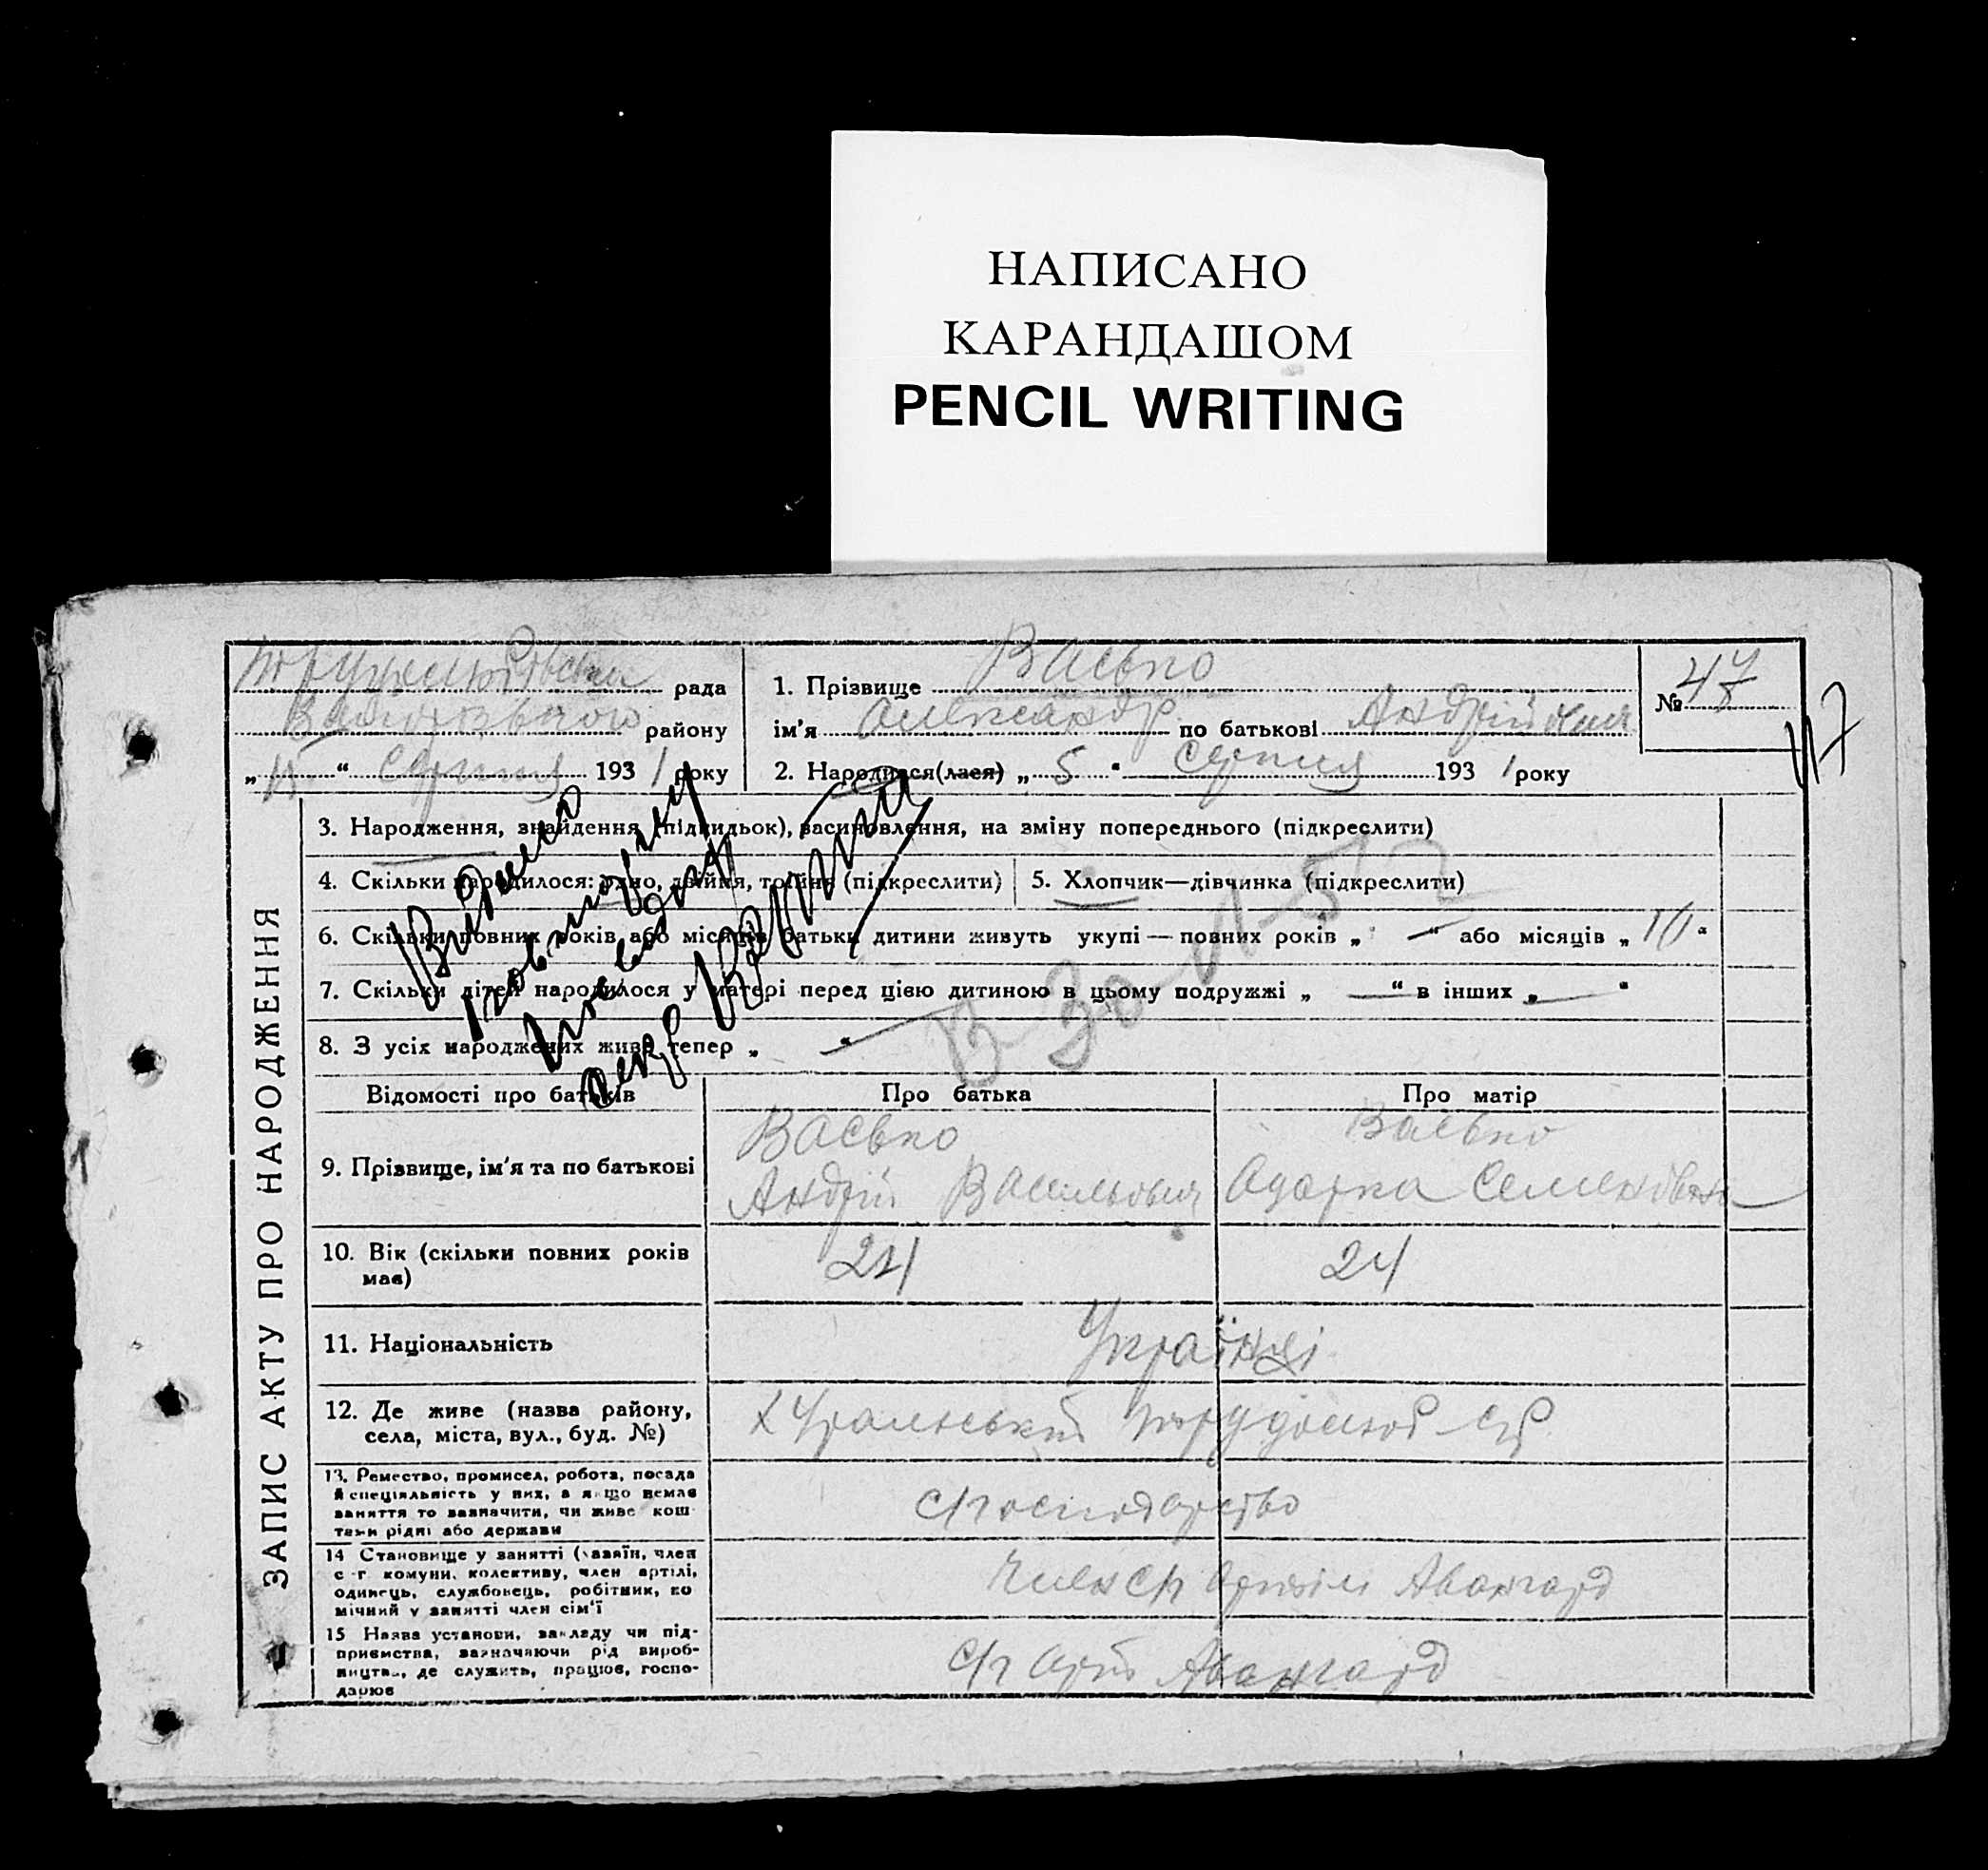 НАПИСАНО
КАРАНДАШОМ
PENCIL WRITING
рада
району
„ “ Серпня 1931 року
1. Прізвище Васько
ім'я Олександр по батькові Андрійович
2. Народився(лася) „ 5 “ Серпня 1931 року
№ 47
47
ЗАПИС АКТУ ПРО НАРОДЖЕННЯ
3. Народження, знайдення (підкидьок), васиновлення, на зміну попереднього (підкреслити)
4. Скільки народилося: одно, двійня, трійня (підкреслити)
5. Хлопчик—дівчинка (підкреслити)
6. Скільки повних років або місяців батьки дитини живуть укупі — повних років „ — “ або місяців „ 10 “
7. Скільки дітей народилося у матері перед цією дитиною в цьому подружжі „ — “ в інших „ — “
8. З усіх народжених живе тепер „ — “
Видано
Відомості про батьків
Про батька
Про матір
9. Прізвище, ім'я та по батькові
Васько
Андрій Васильович
Васько
Одарка Семеновна
10. Вік (скільки повних років
має)
24
24
11. Національність
Українці
12. Де живе (назва району,
села, міста, вул., буд. №)
13. Ремество, промисел, робота, посада
й спеціяльність у них, а якщо немає
заняття то зазначити, чи живе кош-
тами рідні або держави
с/господарство
14 Становище у занятті (хазяїн, член
с-г комуни, колективу, член артілі,
одинець, службовець, робітник, по
мічний у занятті член сім'ї
Член с/г артілі Авангард
15 Назва установи, закладу чи під-
приємства, зазначаючи рід вироб-
ництва, де служить, працює, госпо-
дарює
с/г арт Авангард